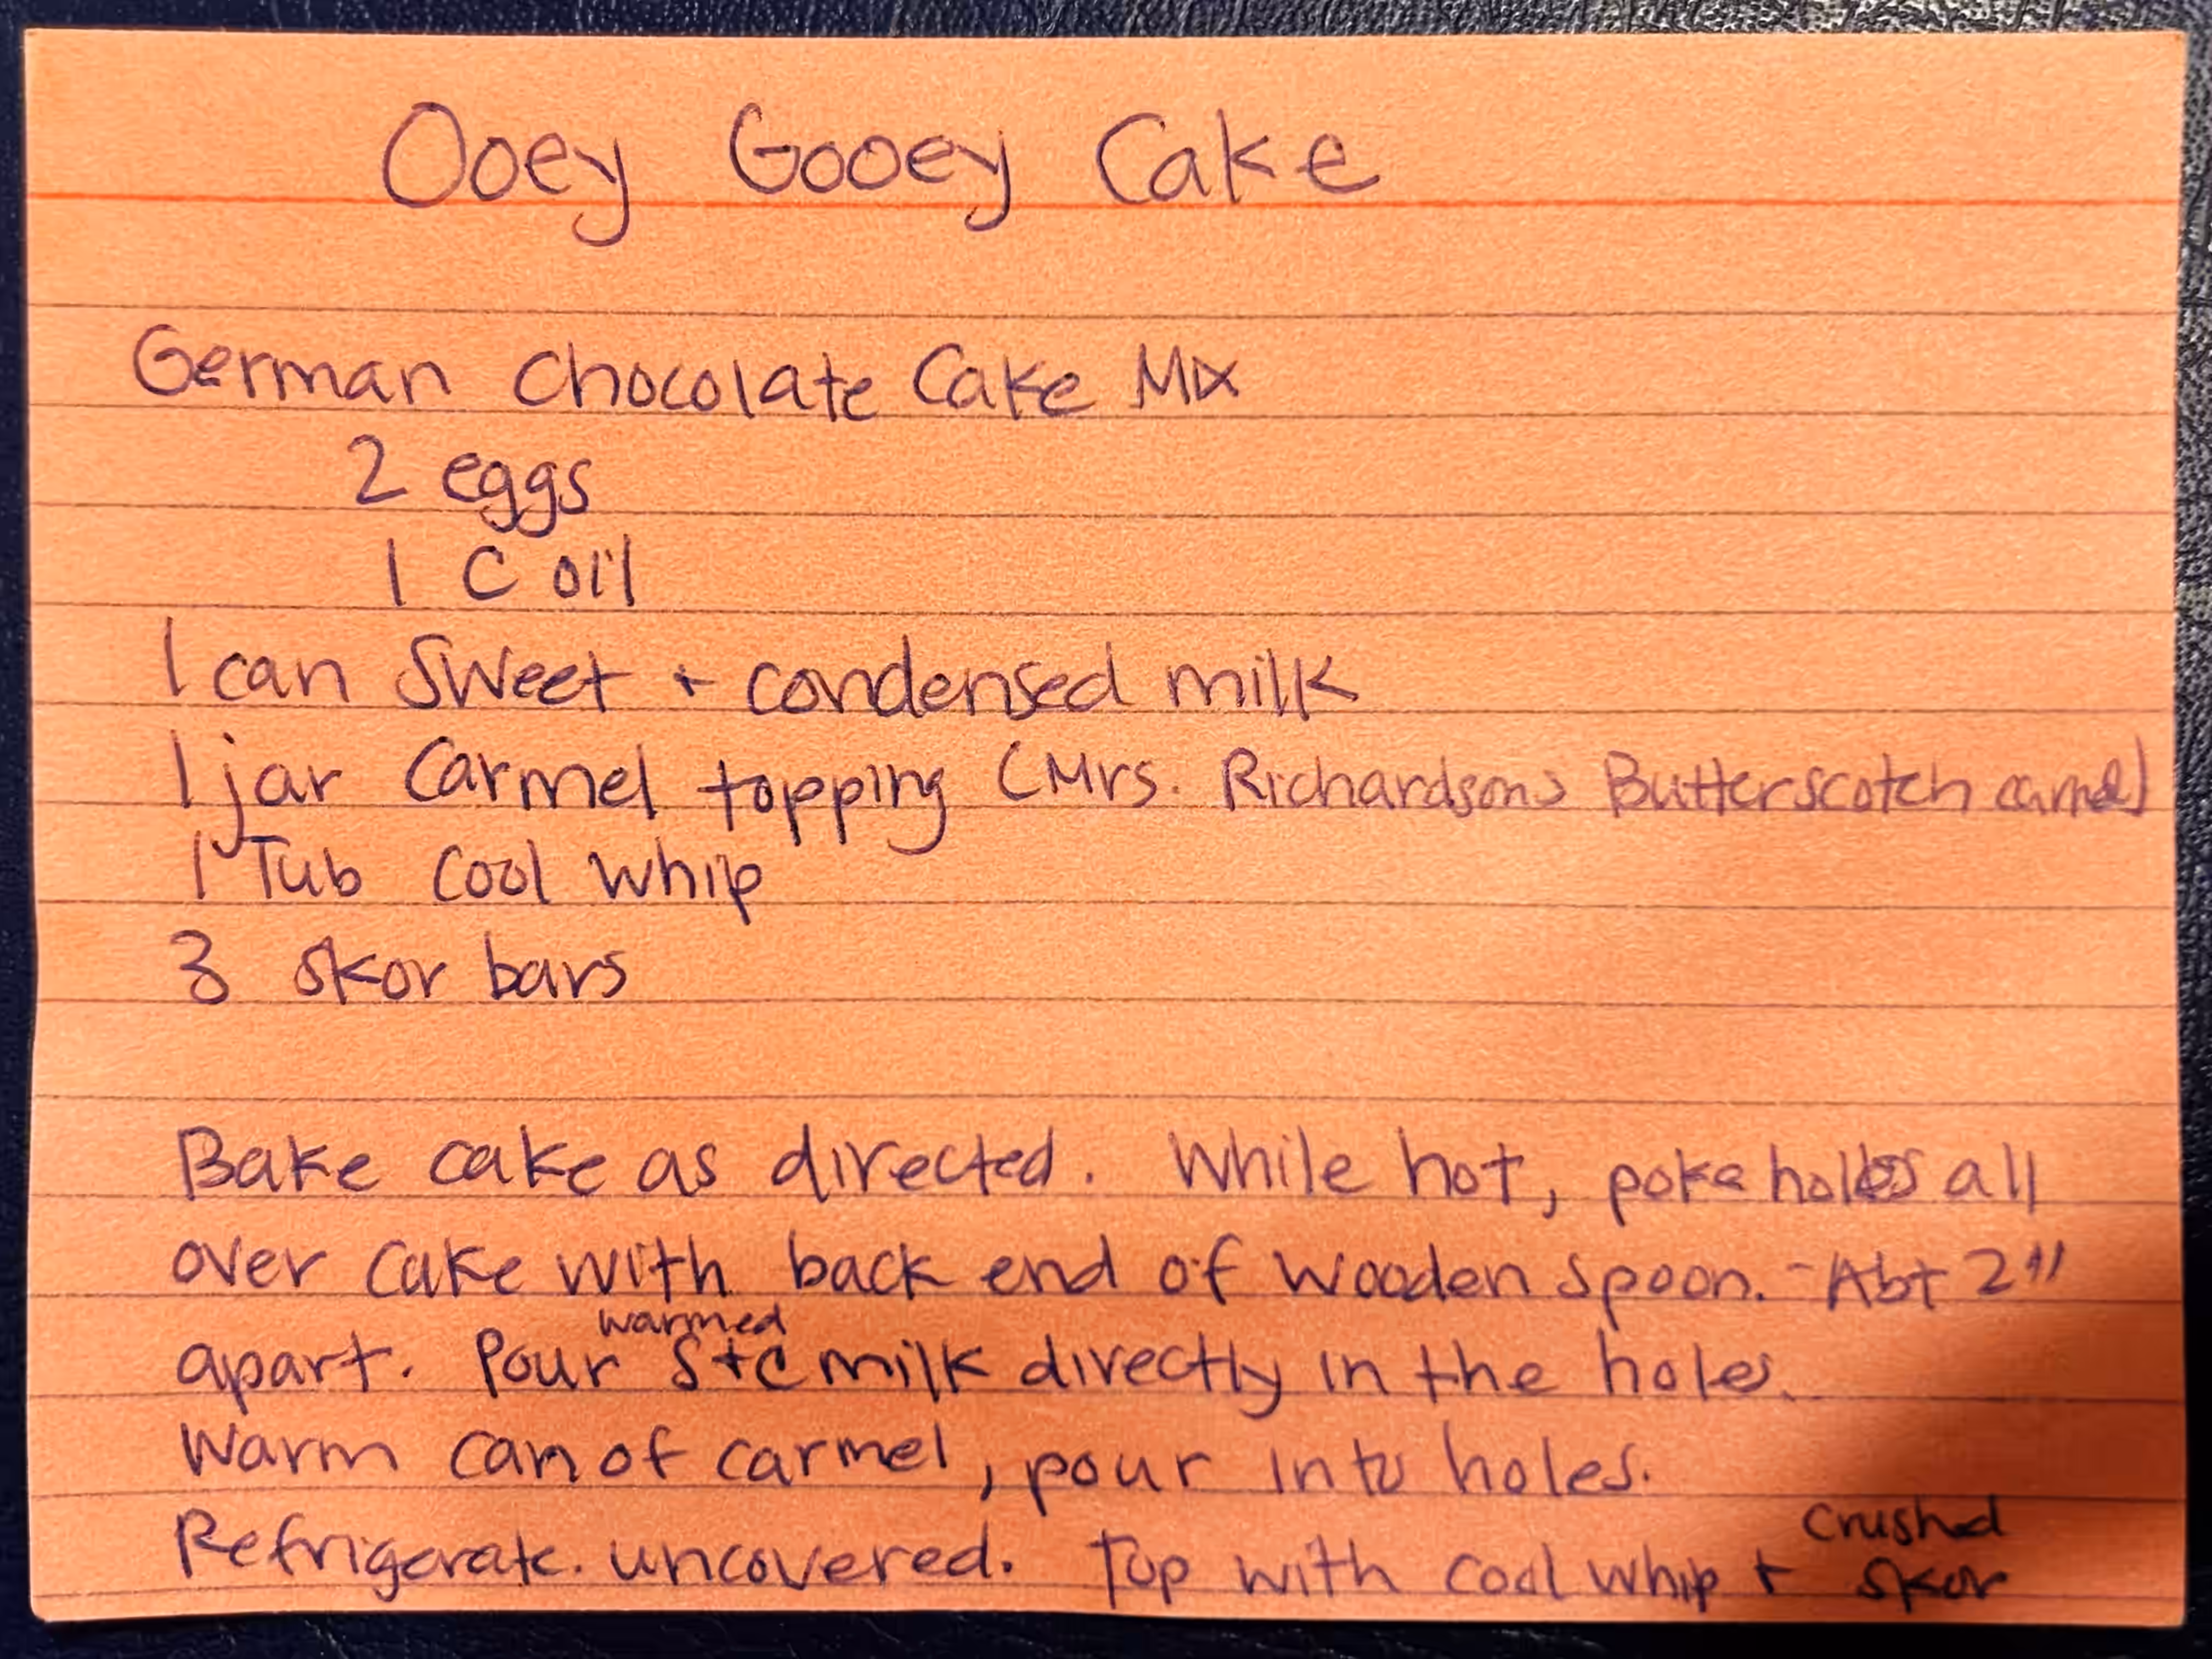 Ooey Gooey Cake
German Chocolate Cake Mix
2 eggs
1 C oil
1 can Sweet + condensed milk
1 jar Carmel topping (Mrs. Richardsons Butterscotch carmel)
1 Tub Cool Whip
3 skor bars
Bake cake as directed. While hot, poke holes all
over cake with back end of wooden spoon. - Abt 2"
warmed
apart. Pour S+C milk directly in the holes.
Warm can of carmel, pour into holes.
crushed
Refrigerate. uncovered. Top with cool whip + skor